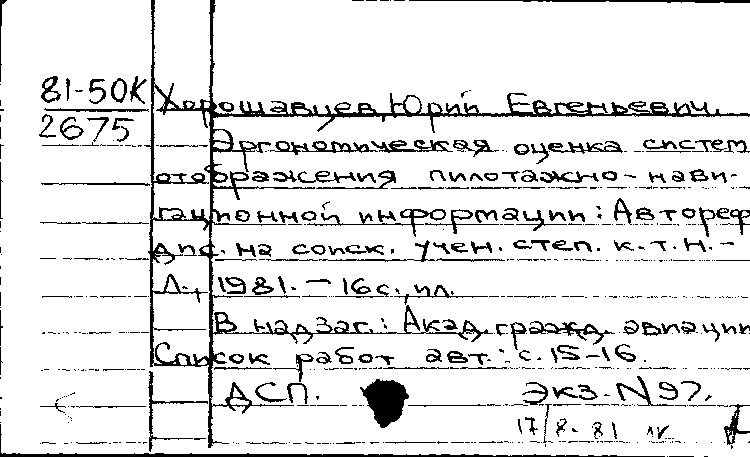 81-50К Хорошавцев, Юрий Евгеньевич.
2675
Эргономическая оценка систем
отображения пилотажно-нави-
гационной информации: Автореф
дис. на соиск. учен. степ. к.т.н.-
Л., 1981. - 16 с., ил.
В надзаг.: Акад. гражд. авиации
Список работ авт.: с. 15-16.
ДСП. Экз. N97.
17/8-81